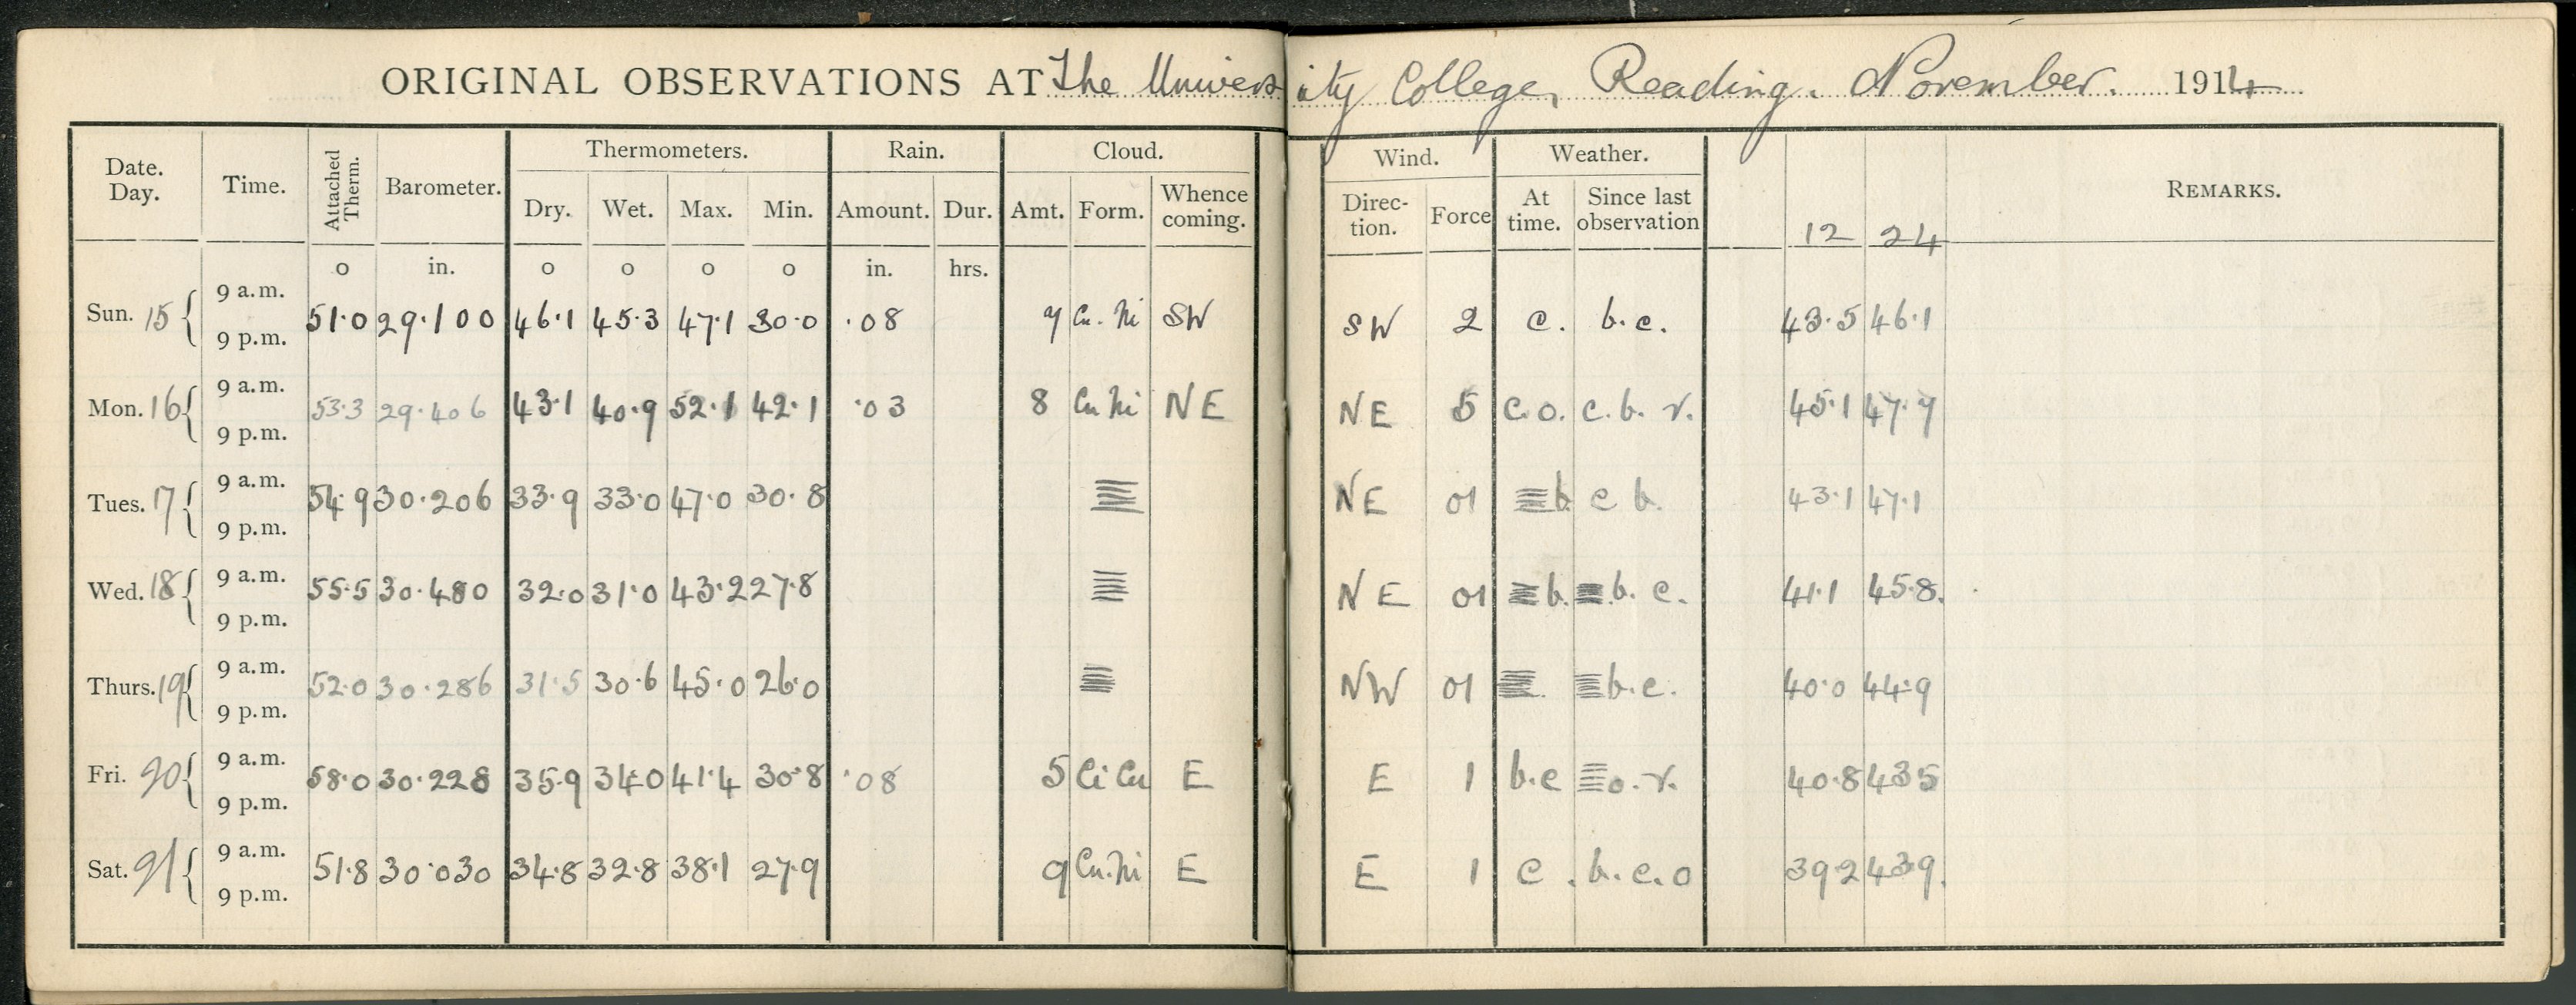 ORIGINAL OBSERVATIONS AT The University College, Reading. November. 1914
Date. Day. Time. Attached Therm. Barometer. Thermometers. Rain. Cloud. Wind. Weather. REMARKS.
Dry. Wet. Max. Min. Amount. Dur. Amt. Form. Whence coming. Direc-tion. Force At time. Since last observation 12 24
o in. o o o o in. hrs.
Sun. 15 { 9 a.m. 9 p.m. 51.0 29.100 46.1 45.3 47.1 30.0 .08 Cu. Ni SW SW 2 c. b.c. 43.5 46.1
Mon. 16 { 9 a.m. 9 p.m. 53.3 29.406 43.1 40.9 52.1 42.1 .03 8 Cu Ni NE NE 5 c.o. c.b.r. 45.1 47.7
Tues. 17 { 9 a.m. 9 p.m. 54.9 30.206 33.9 33.0 47.0 30.8 ≡ NE 01 ≡b. c b. 43.1 47.1
Wed. 18 { 9 a.m. 9 p.m. 55.5 30.480 32.0 31.0 43.2 27.8 ≡ NE 01 ≡b. ≡.b.c. 41.1 45.8.
Thurs. 19 { 9 a.m. 9 p.m. 52.0 30.286 31.5 30.6 45.0 26.0 ≡ NW 01 ≡. ≡b.c. 40.0 44.9
Fri. 20 { 9 a.m. 9 p.m. 58.0 30.228 35.9 34.0 41.4 30.8 .08 5 Ci Cu E E 1 b.c ≡o.r. 40.8 43 5
Sat. 21 { 9 a.m. 9 p.m. 51.8 30.030 34.8 32.8 38.1 27.9 9 Cu.Ni E E 1 c . b.c.o 39 2 43.9.